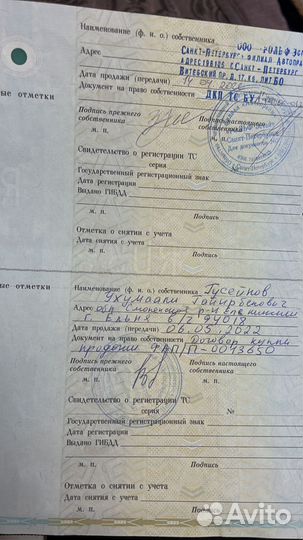 Наименование (ф. и. о.) собственника
ООО "РОЛЬФ
Адрес
САНКТ-ПЕТЕРБУРГ" ФИЛИАЛ
АДРЕС:196105 Г.САНКТ-ПЕТЕРБУРГ
ВИТЕБСКИЙ ПР. Д.17,К6,ЛИТ.БО
Дата продажи (передачи)
ые отметки
Документ на право собственности
Подпись прежнего собственника
Подпись настоящего собственника
м. п.
м. п.
Свидетельство о регистрации ТС
серия
Государственный регистрационный знак
Дата регистрации
Выдано ГИБДД
м. п.
Подпись
Отметка о снятии с учета
Дата снятия с учета
м. п.
Подпись
ые отметки
Наименование (ф. и. о.) собственника Гусейнов
Адрес обл Смоленская р-н
г. Ельня
Дата продажи (передачи) 06.05.2022
Документ на право собственности Договор купли
продажи
Подпись прежнего собственника
Подпись настоящего собственника
м. п.
м. п.
Свидетельство о регистрации ТС
серия
№
Государственный регистрационный знак
Дата регистрации
Выдано ГИБДД
м. п.
Подпись
Отметка о снятии с учета
Дата снятия с учета
м. п.
Подпись
Avito